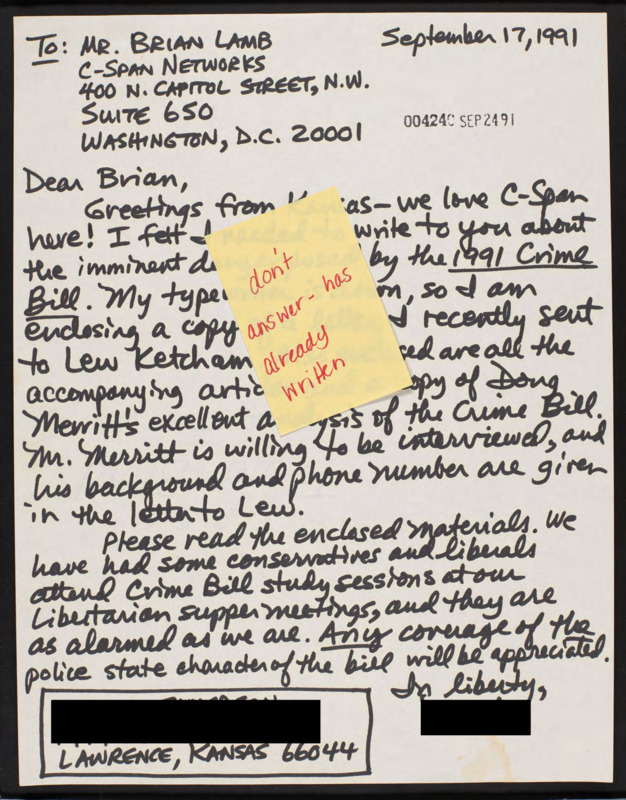 To: Mr. Brian Lamb
C-Span Networks
400 N. Capitol Street, N.W.
Suite 650
Washington, D.C. 20001
September 17, 1991
004240 SEP 24 91
Dear Brian,
Greetings from Kansas – we love C-Span
here! I felt I needed to write to you about
the imminent by the 1991 Crime
Bill. My so I am
enclosing a copy I recently sent
to Lew Ketcham are all the
accompanying copy of Doug
Merritt's excellent analysis of the Crime Bill.
Mr. Merritt is willing to be interviewed, and
his background and phone number are given
in the letter to Lew.
Please read the enclosed materials. We
have had some conservatives and liberals
attend Crime Bill study sessions at our
Libertarian supper meetings, and they are
as alarmed as we are. Any coverage of the
police state character of the bill will be appreciated.
In liberty,
Lawrence, Kansas 66044
don't
answer – has
already
written